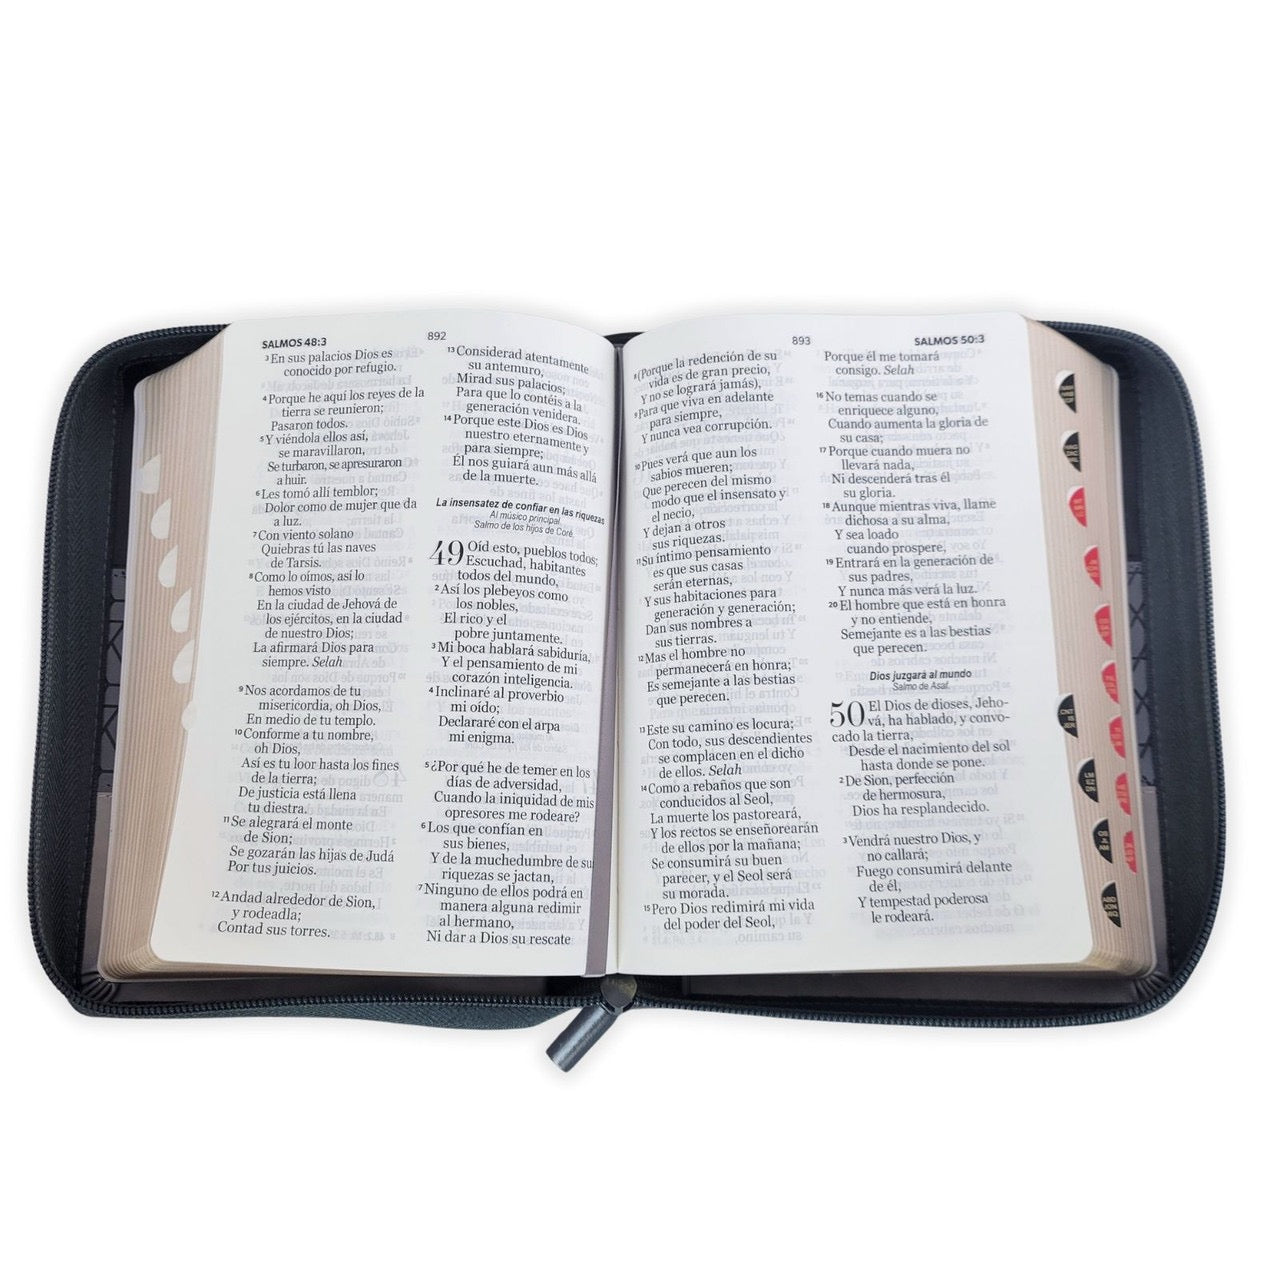 SALMOS 48:3
892
³En sus palacios Dios es
conocido por refugio.
⁴Porque he aquí los reyes de la
tierra se reunieron;
Pasaron todos.
⁵Y viéndola ellos así,
se maravillaron,
Se turbaron, se apresuraron
a huir.
⁶Les tomó allí temblor;
Dolor como de mujer que da
a luz.
⁷Con viento solano
Quiebras tú las naves
de Tarsis.
⁸Como lo oímos, así lo
hemos visto
En la ciudad de Jehová de
los ejércitos, en la ciudad
de nuestro Dios;
La afirmará Dios para
siempre. Selah
⁹Nos acordamos de tu
misericordia, oh Dios,
En medio de tu templo.
¹⁰Conforme a tu nombre,
oh Dios,
Así es tu loor hasta los fines
de la tierra;
De justicia está llena
tu diestra.
¹¹Se alegrará el monte
de Sion;
Se gozarán las hijas de Judá
Por tus juicios.
¹²Andad alrededor de Sion,
y rodeadla;
Contad sus torres.
¹³Considerad atentamente
su antemuro,
Mirad sus palacios;
Para que lo contéis a la
generación venidera.
¹⁴Porque este Dios es Dios
nuestro eternamente y
para siempre;
Él nos guiará aun más allá
de la muerte.
La insensatez de confiar en las riquezas
Al músico principal.
Salmo de los hijos de Coré.
49 Oíd esto, pueblos todos;
Escuchad, habitantes
todos del mundo,
²Así los plebeyos como
los nobles,
El rico y el
pobre juntamente.
³Mi boca hablará sabiduría,
Y el pensamiento de mi
corazón inteligencia.
⁴Inclinaré al proverbio
mi oído;
Declararé con el arpa
mi enigma.
⁵¿Por qué he de temer en los
días de adversidad,
Cuando la iniquidad de mis
opresores me rodeare?
⁶Los que confían en
sus bienes,
Y de la muchedumbre de su
riquezas se jactan,
⁷Ninguno de ellos podrá en
manera alguna redimir
al hermano,
Ni dar a Dios su rescate
893
SALMOS 50:3
⁸(Porque la redención de su
vida es de gran precio,
Y no se logrará jamás),
⁹Para que viva en adelante
para siempre,
Y nunca vea corrupción.
¹⁰Pues verá que aun los
sabios mueren;
Que perecen del mismo
modo que el insensato y
el necio,
Y dejan a otros
sus riquezas.
¹¹Su íntimo pensamiento
es que sus casas
serán eternas,
Y sus habitaciones para
generación y generación;
Dan sus nombres a
sus tierras.
¹²Mas el hombre no
permanecerá en honra;
Es semejante a las bestias
que perecen.
¹³Este su camino es locura;
Con todo, sus descendientes
se complacen en el dicho
de ellos. Selah
¹⁴Como a rebaños que son
conducidos al Seol,
La muerte los pastoreará,
Y los rectos se enseñorearán
de ellos por la mañana;
Se consumirá su buen
parecer, y el Seol será
su morada.
¹⁵Pero Dios redimirá mi vida
del poder del Seol,
Porque él me tomará
consigo. Selah
¹⁶No temas cuando se
enriquece alguno,
Cuando aumenta la gloria de
su casa;
¹⁷Porque cuando muera no
llevará nada,
Ni descenderá tras él
su gloria.
¹⁸Aunque mientras viva, llame
dichosa a su alma,
Y sea loado
cuando prospere,
¹⁹Entrará en la generación de
sus padres,
Y nunca más verá la luz.
²⁰El hombre que está en honra
y no entiende,
Semejante es a las bestias
que perecen.
Dios juzgará al mundo
Salmo de Asaf.
50 El Dios de dioses, Jeho-
vá, ha hablado, y convo-
cado la tierra,
Desde el nacimiento del sol
hasta donde se pone.
²De Sion, perfección
de hermosura,
Dios ha resplandecido.
³Vendrá nuestro Dios, y
no callará;
Fuego consumirá delante
de él,
Y tempestad poderosa
le rodeará.
CNT
IS
JER
LM
EZ
DN
OS
JL
AM
ABD
JON